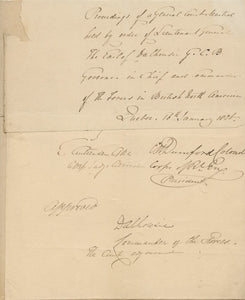 Proceedings of a General Court Martial
held by order of Lieutenant General
The Earl of Dalhousie G.C.B.
Governor in Chief and commander
of the Forces in British North America
Quebec 16th January 1826
Durnford Colonel
Corps of Rl. Eng
President
Approved
Dalhousie
Commander of the Forces
The Court